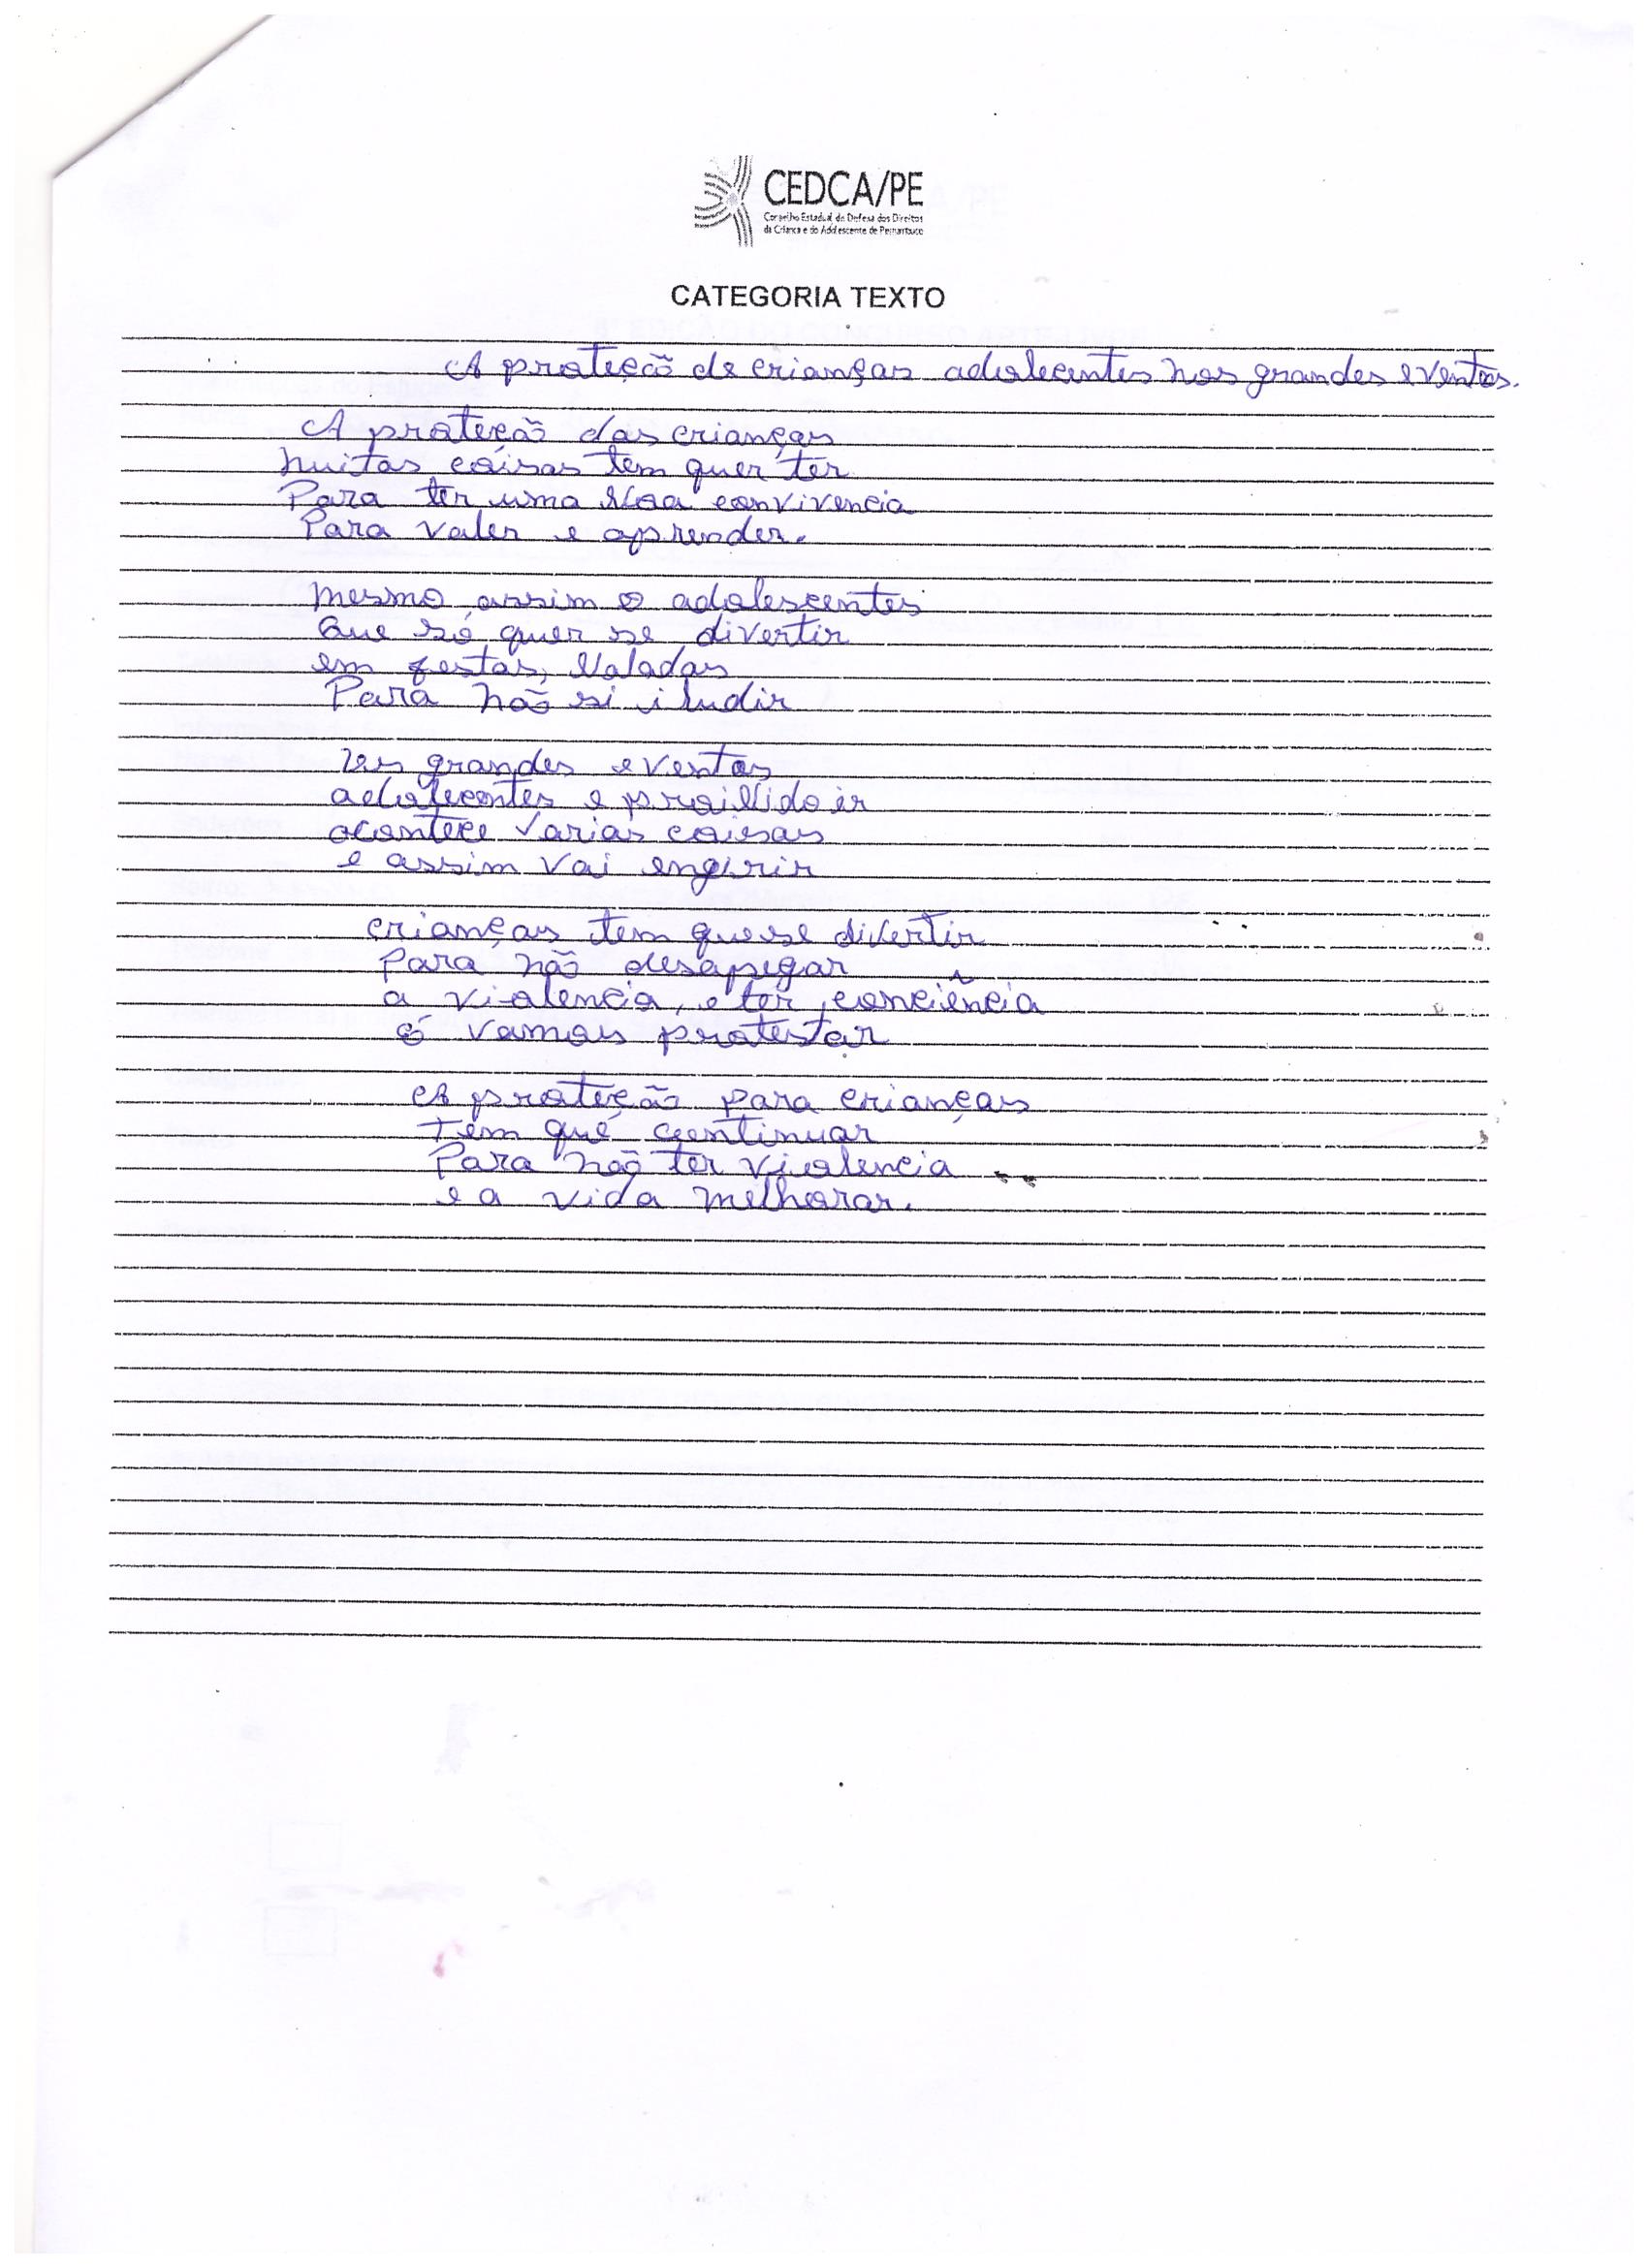 CEDCA/PE
Conselho Estadual de Defesa dos Direitos
da Criança e do Adolescente de Pernambuco
CATEGORIA TEXTO
A proteção de crianças adolecentes nos grandes eventos.
A proteção das crianças
Muitas coisas tem quer ter
Para ter uma boa convivencia
Para valer e aprender.
Mesmo assim o adolescentes
Que só quer se divertir
em festas, baladas
Para não si iludir
grandes eventos
adolecentes e proibido ir
acontece varias coisas
e assim vai engirir
crianças tem que se divertir
Para não desapegar
a violencia, e ter conciência
é vamos protestar
A proteção para crianças
Tem que continuar
Para não ter violencia
e a vida melhorar.